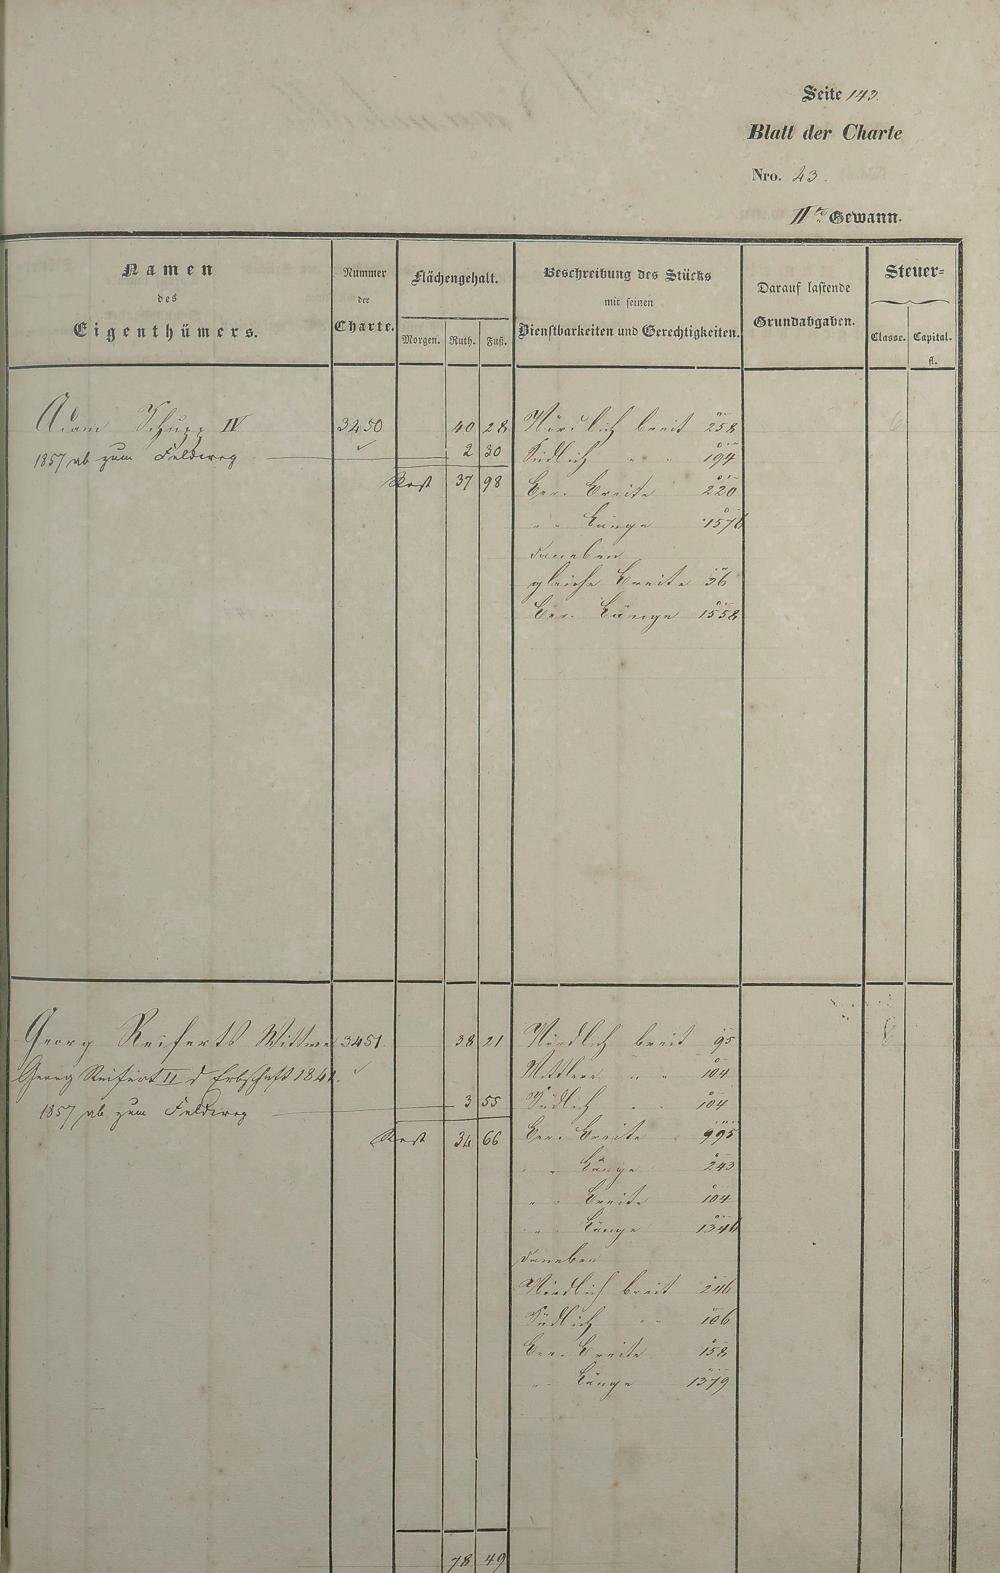 Seite 143.
Blatt der Charte
Nro. 43.
IIte Gewann.
Namen des Eigenthümers.
Nummer der Charte.
Flächengehalt.
Morgen. Ruth. Fuß.
Beschreibung des Stücks mit seinen Dienstbarkeiten und Gerechtigkeiten.
Darauf lastende Grundabgaben.
Steuer=
Classe. Capital.
fl.
Adam Schupp IV 3450 40 28 Nördlich breit 258
1857 ab zum Feldweg 2 30 Südlich " " 194
Rest 37 98 Ber. Breite 220
" " Länge 1576
daneben
gleiche Breite 56
Ber. Länge 1558
Georg Reiferts Wittwe 3451 38 21 Nördlich breit 95
Georg Reifert II d Erbschaft 1841. Mittlere " " 104
1857 ab zum Feldweg 3 55 Südlich " " 104
Rest 34 66 Ber. Breite 995
" " Länge 243
" " Breite 104
" " Länge 1346
daneben
Nördlich breit 246
Südlich " " 106
Ber. Breite 158
" " Länge 1379
78 49